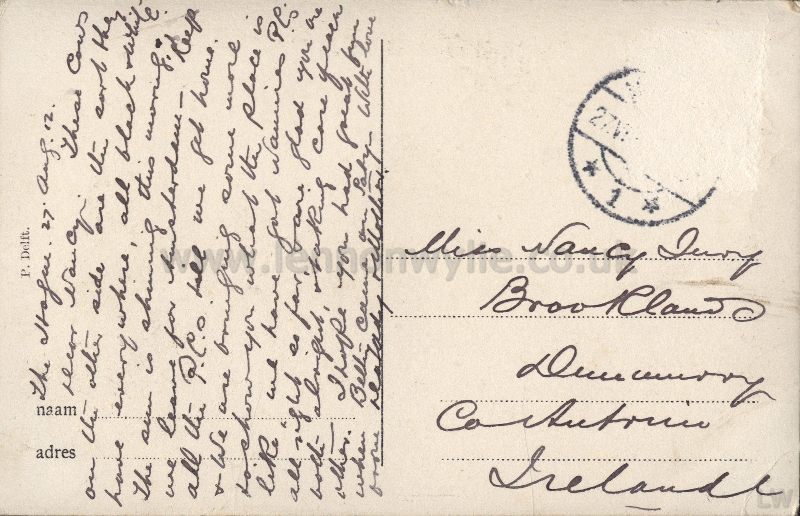 The Hague. 27. Aug. 12.
Dear Nancy. These Cows
on the other side are the sort they
have everywhere, all black & white.
The sun is shining this morning,
we leave for Amsterdam – Keep
all the P.C.s till we get home.
& We are bringing some more
to show you what the place is
like. We have got Nannie's P.C.
all right so far, are glad you are
both alright, & taking care of each
other. I hope you had good fun
when came on With love
from
P. Delft.
naam
adres
27.VI
1
Miss Nancy Jury
Brooklands
Dunmurry
Co Antrim
Ireland
www.lennonwylie.co.uk
LW